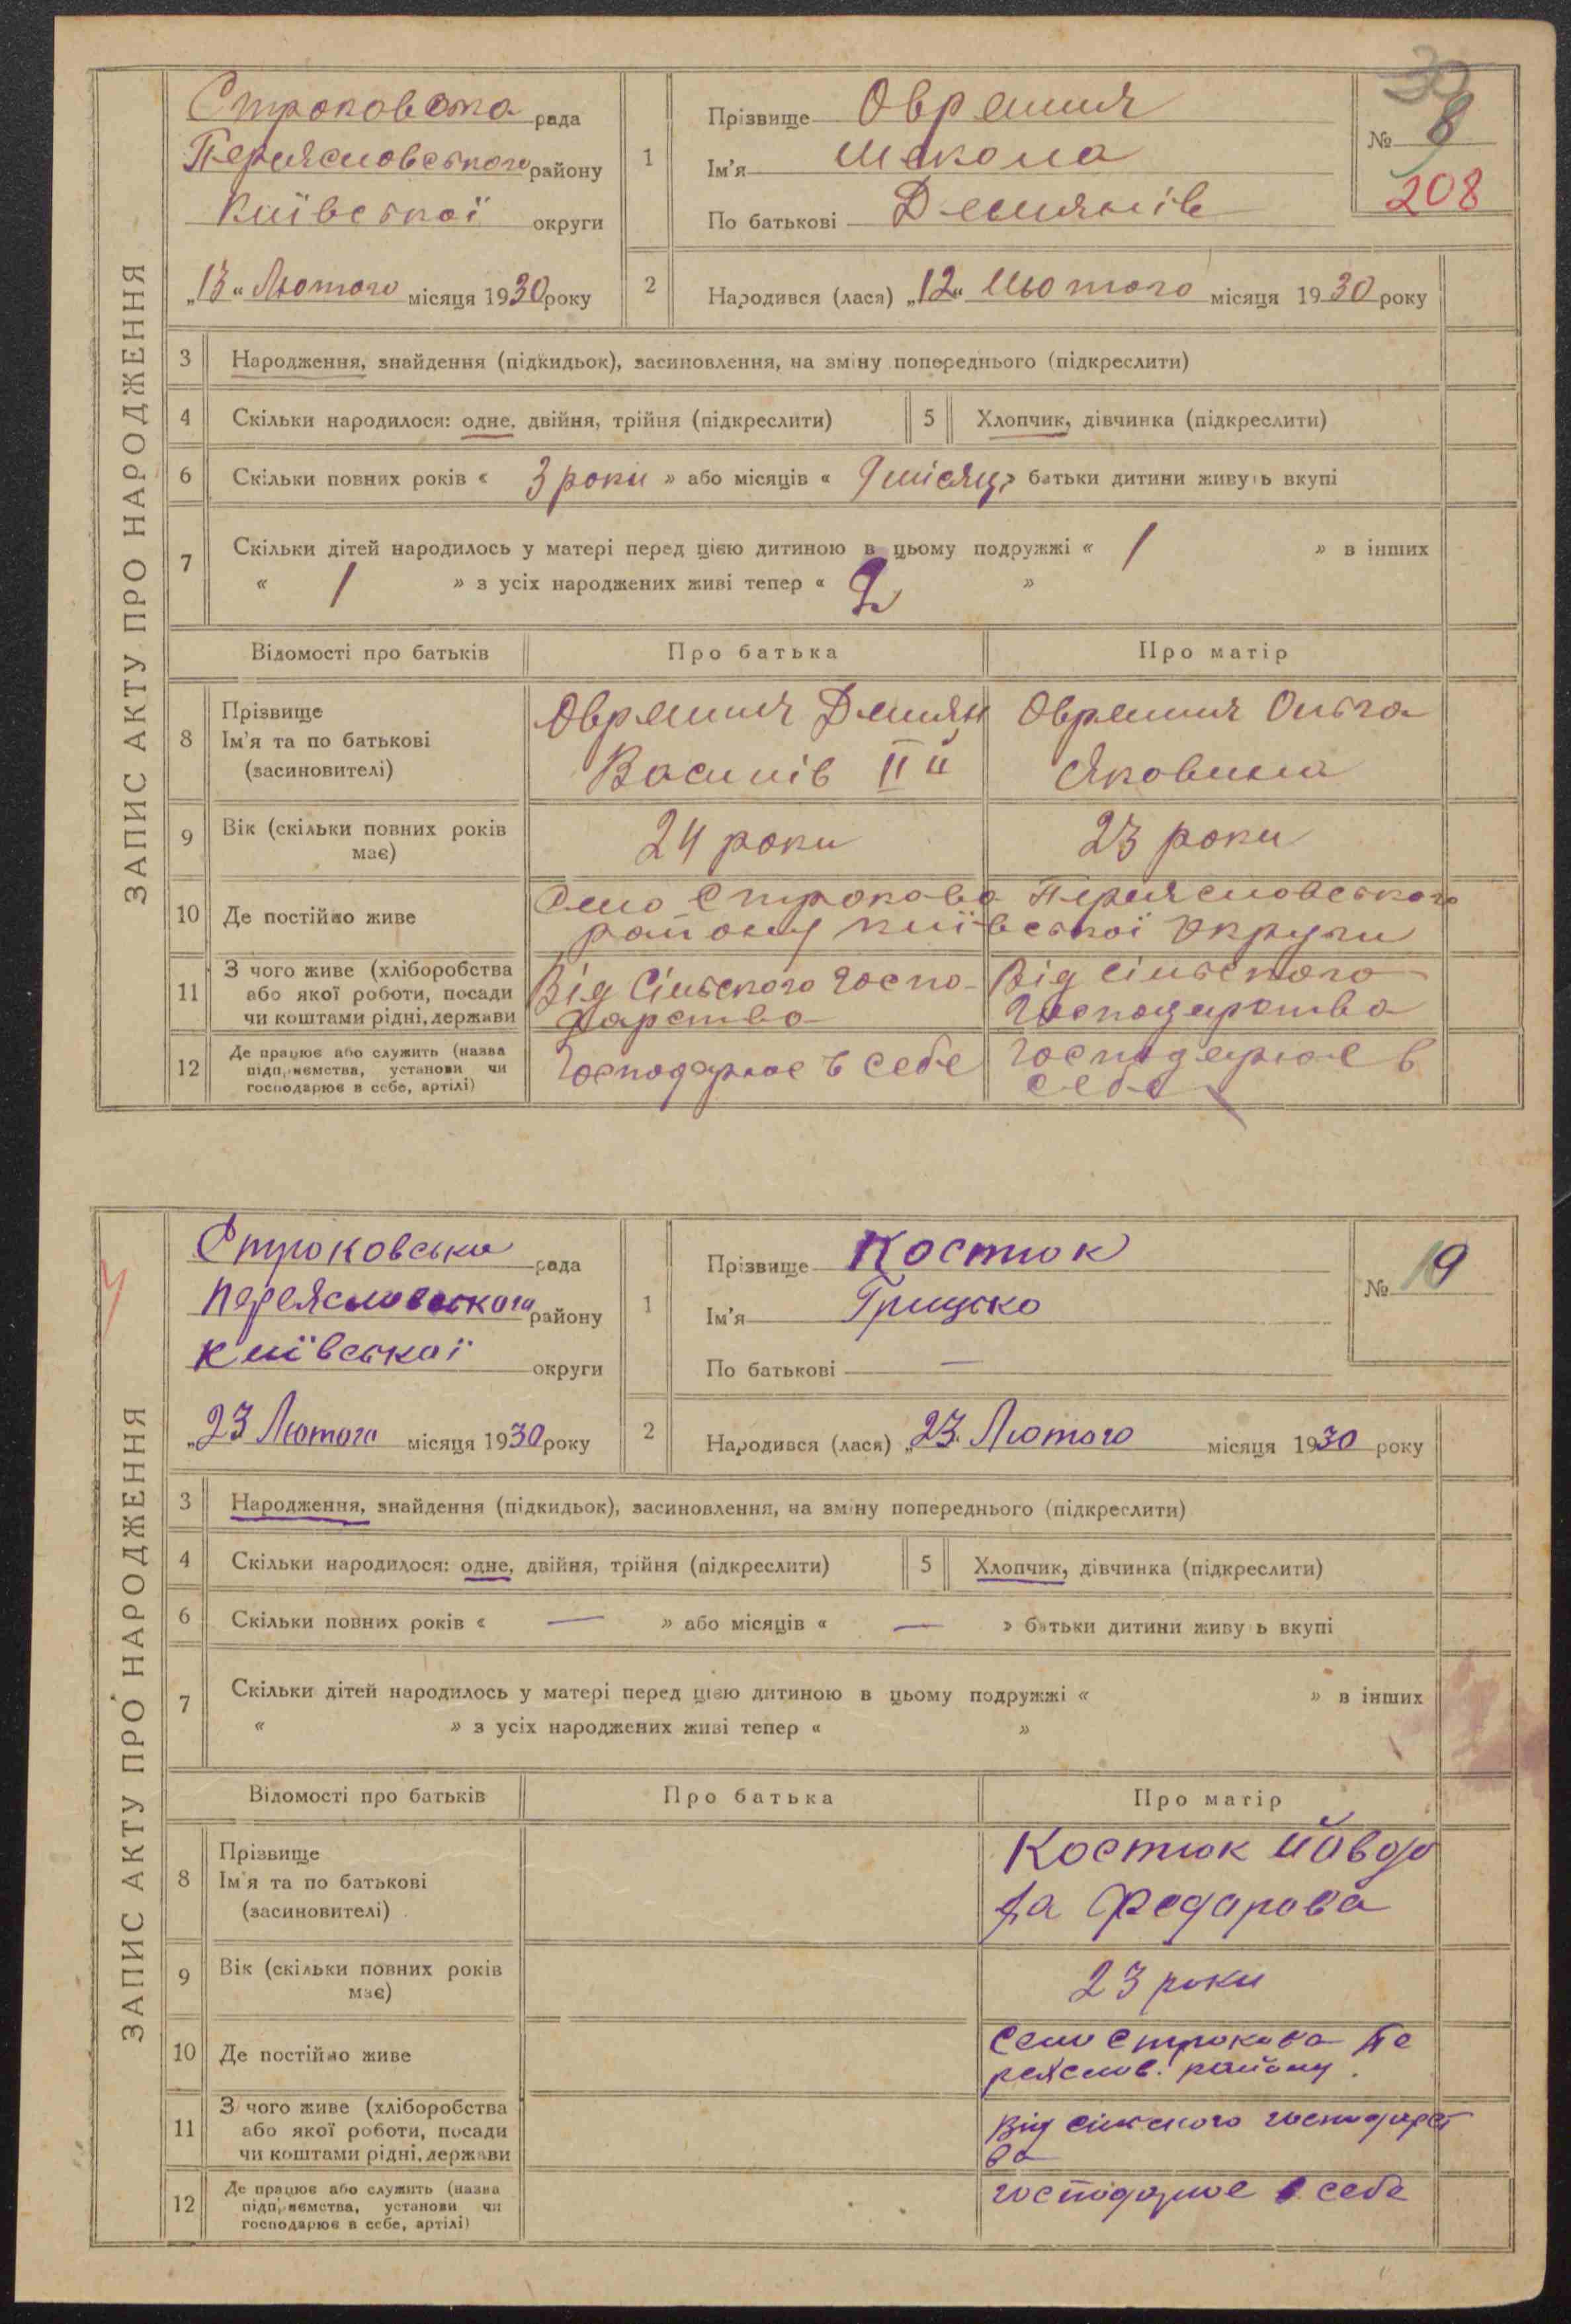 ЗАПИС АКТУ ПРО НАРОДЖЕННЯ
Строковська рада
Переясловського району
Київської округи
„13“ Лютого місяця 1930 року
1
Прізвище Оврамич
Ім'я Микола
По батькові Демянів
№ 8
208
2
Народився (лася) „12“ Лютого місяця 1930 року
3 Народження, знайдення (підкидьок), засиновлення, на зміну попереднього (підкреслити)
4 Скільки народилося: одне, двійня, трійня (підкреслити) 5 Хлопчик, дівчинка (підкреслити)
6 Скільки повних років « 3 роки » або місяців « 9 місяц » батьки дитини живуть вкупі
7 Скільки дітей народилось у матері перед цією дитиною в цьому подружжі « 1 » в інших
« 1 » з усіх народжених живі тепер « 2 »
Відомості про батьків Про батька Про матір
8 Прізвище
Ім'я та по батькові
(засиновителі)
Оврамич Демян
Василів II й
Оврамич Ольга
Яковина
9 Вік (скільки повних років
має)
24 роки
23 роки
10 Де постійно живе
Село Строкова Переясловського
району Київської Округи
11 З чого живе (хліборобства
або якої роботи, посади
чи коштами рідні, держави
Від Сільского Госпо-
дарства
Від сільского
Господарства
12 Де працює або служить (назва
підприємства, установи чи
господарює в себе, артілі)
Господарює в себе
Господарює в
себе
ЗАПИС АКТУ ПРО НАРОДЖЕННЯ
Строковська рада
Переясловського району
Київської округи
„23 Лютого місяця 1930 року
1
Прізвище Костюк
Ім'я Грицько
По батькові —
№ 9
2
Народився (лася) „23. Лютого місяця 1930 року
3 Народження, знайдення (підкидьок), засиновлення, на зміну попереднього (підкреслити)
4 Скільки народилося: одне, двійня, трійня (підкреслити) 5 Хлопчик, дівчинка (підкреслити)
6 Скільки повних років « — » або місяців « — » батьки дитини живуть вкупі
7 Скільки дітей народилось у матері перед цією дитиною в цьому подружжі « » в інших
« » з усіх народжених живі тепер « »
Відомості про батьків Про батька Про матір
8 Прізвище
Ім'я та по батькові
(засиновителі)
Костюк Йовдо
ха Федарова
9 Вік (скільки повних років
має)
23 роки
10 Де постійно живе
Село Строкова Пе
реяслов. району.
11 З чого живе (хліборобства
або якої роботи, посади
чи коштами рідні, держави
Від сільского господарст
ва
12 Де працює або служить (назва
підприємства, установи чи
господарює в себе, артілі)
господарює в себе